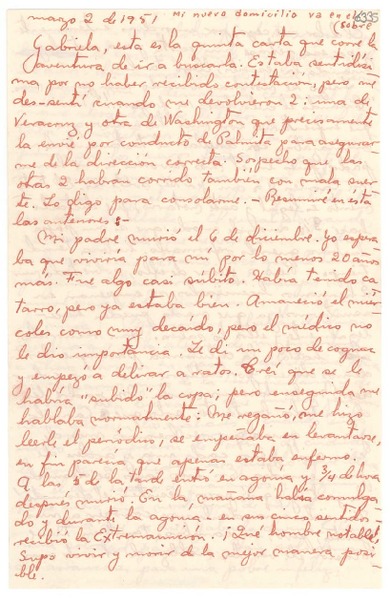 marzo 2 de 1951 Mi nuevo domicilio va en el
(sobre
Gabriela, esta es la quinta carta que corre la
aventura de ir a buscarla. Estaba sentidísi
ma por no haber recibido contestación, pero me
des-sentí cuando me devolvieron 2: una de
Veracruz y otra de Washington que precisamente
la envié por conducto de Palmita para asegurar
me de la dirección correcta. Sospecho que las
otras 2 habrán corrido también con mala suer-
te. Lo digo para consolarme. - Resumiré en esta
las anteriores:-
Mi padre murió el 6 de diciembre. Yo espera
ba que viviría para mí por lo menos 20 años
más. Fue algo casi súbito. Había tenido ca
tarro, pero ya estaba bien. Amaneció el miér
coles como muy decaído, pero el médico no
le dio importancia. Le di un poco de cognac
y empezó a delirar a ratos. Creí que se le
había "subido" la copa; pero enseguida me
hablaba normalmente: Me regañó, me hizo
leerle el periódico, se empeñaba en levantarse,
en fin parecía que apenas estaba enfermo.
A las 5 de la tarde entró en agonía y 3/4 de hora
después murió. En la mañana había comulga
do y durante la agonía - en sus cinco sentidos -
recibió la Extremaunción. ¡Qué hombre notable!
Supo vivir y morir de la mejor manera posi
ble.